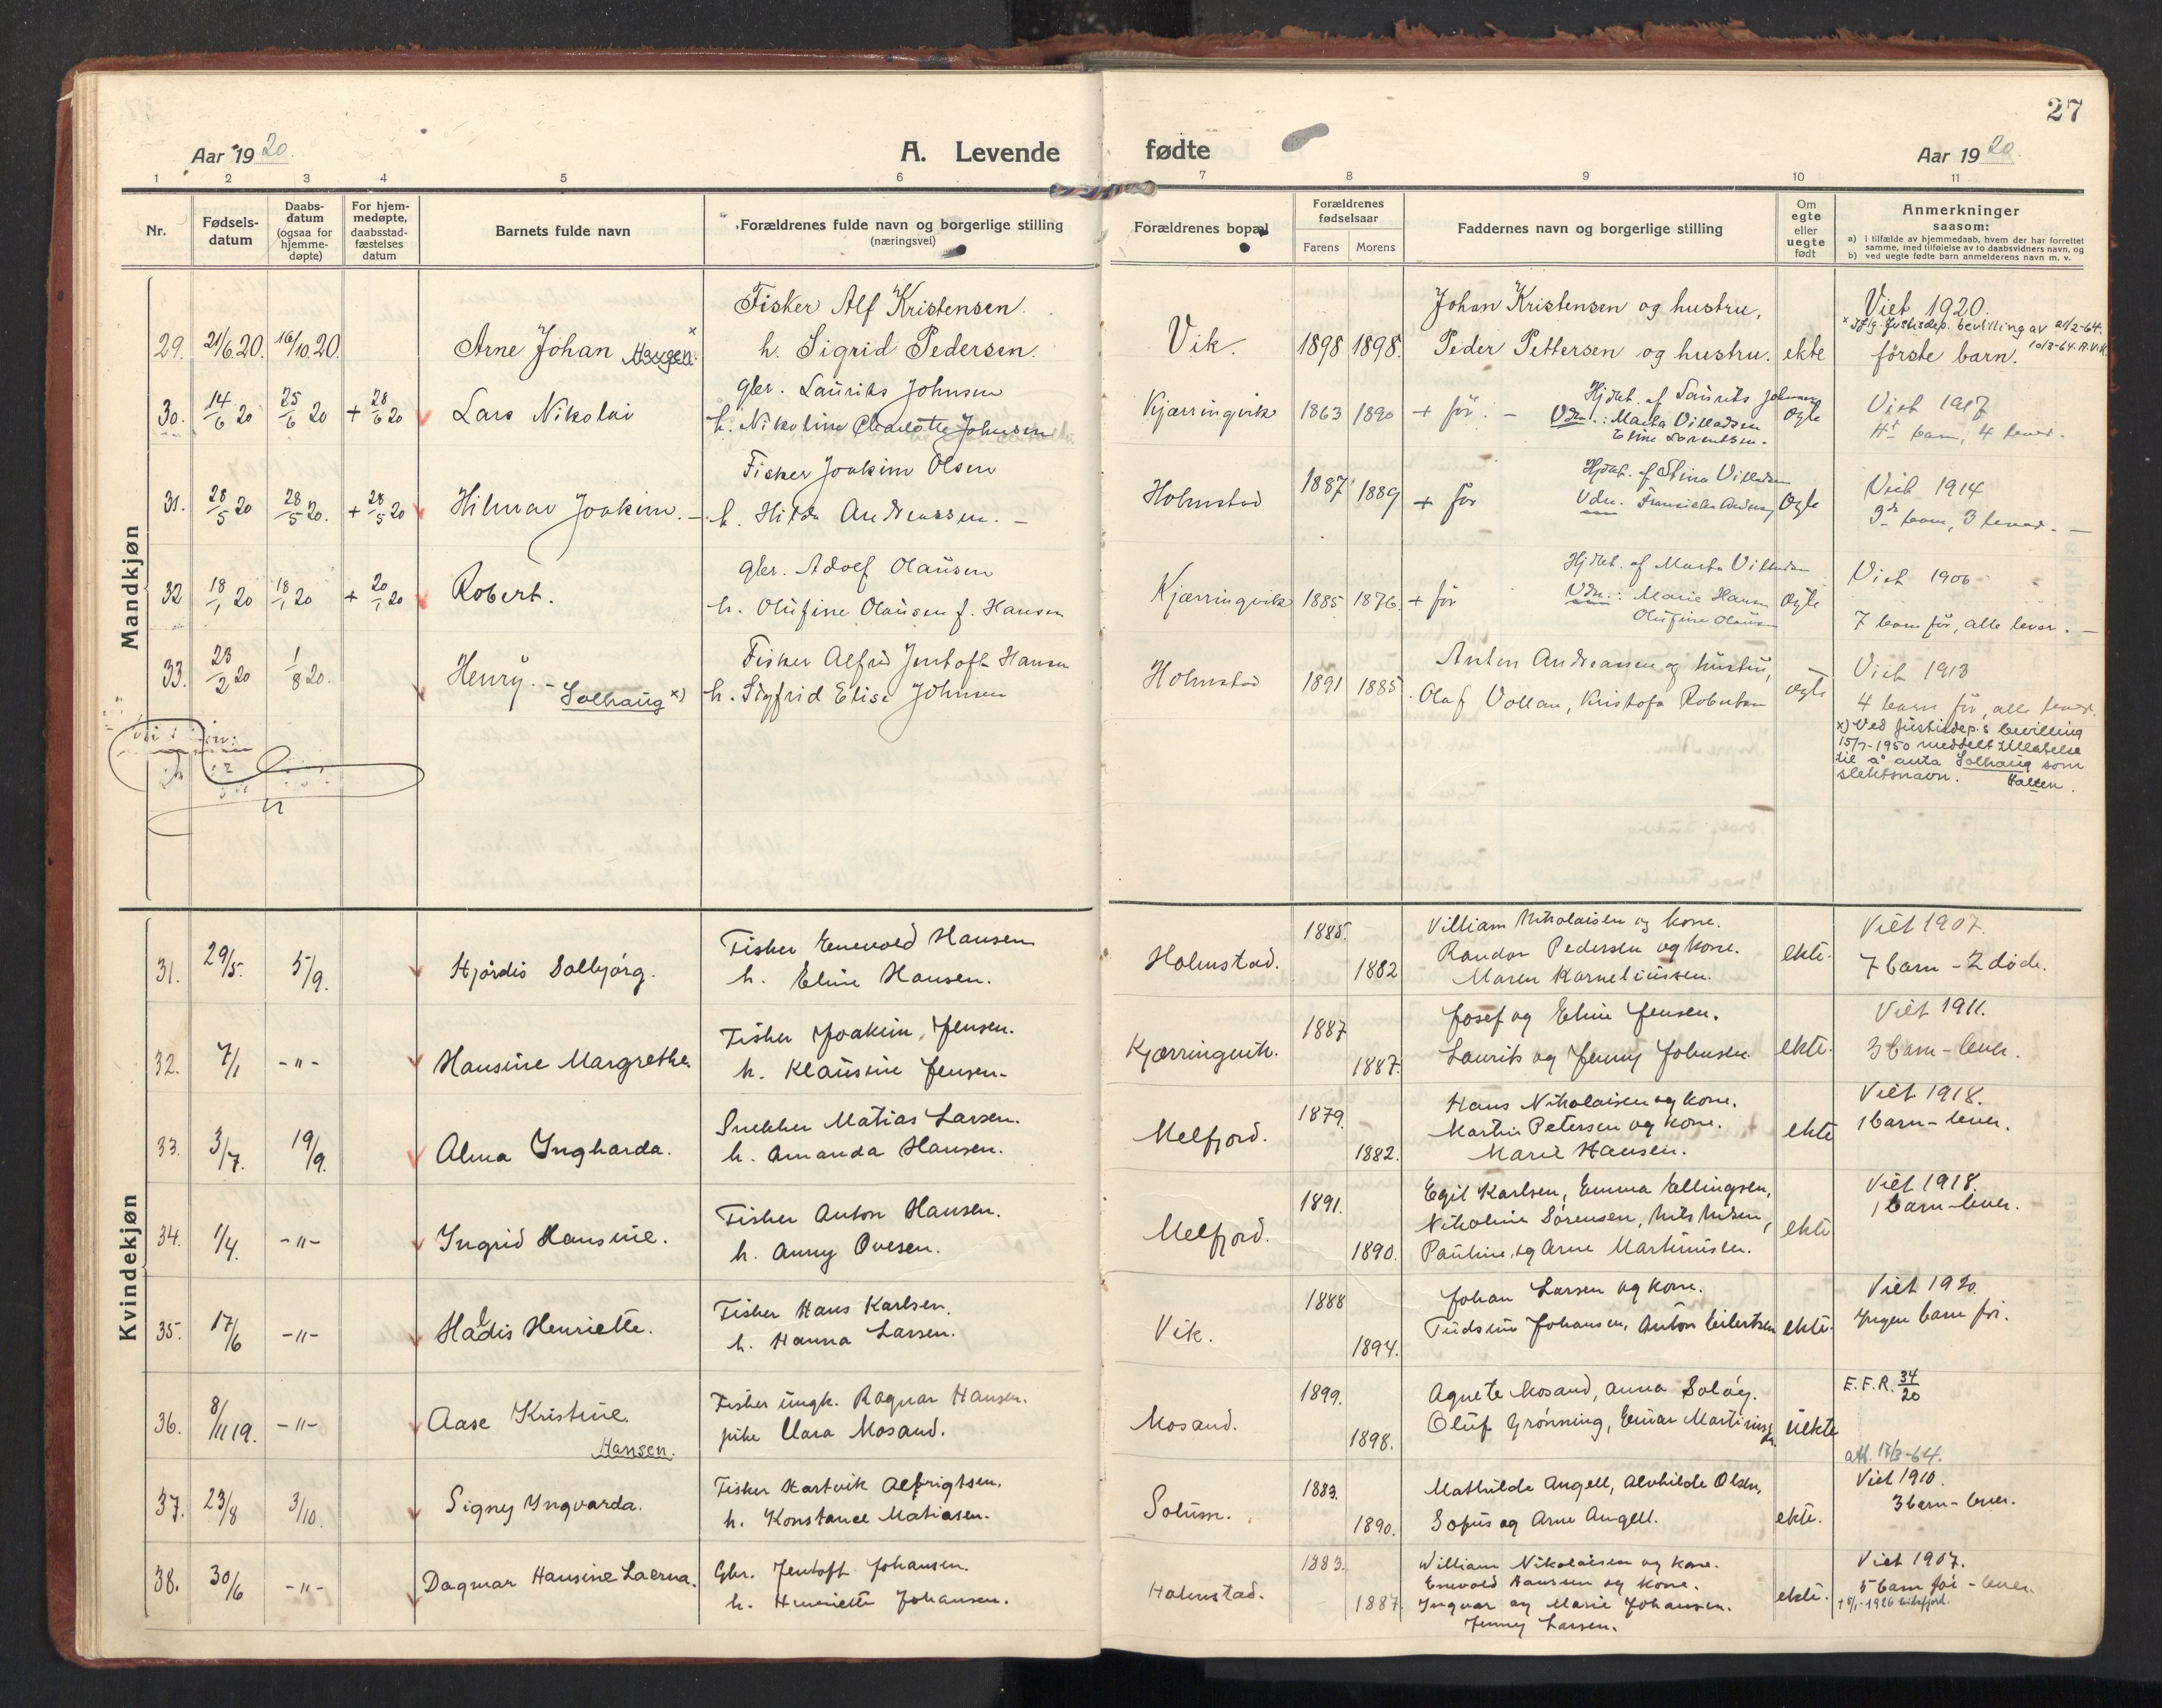 27
Aar 1920.
A. Levende
fødte
Aar 1920.
1 2 3 4 5 6 7 8 9 10 11
Nr.
Fødsels-
datum
Daabs-
datum
(ogsaa for
hjemme-
døpte)
For hjem-
medøpte,
daabsstad-
fæstelses
datum
Barnets fulde navn
Forældrenes fulde navn og borgerlige stilling
(næringsvei)
Forældrenes bopæl
Forældrenes
fødselsaar
Farens Morens
Faddernes navn og borgerlige stilling
Om
egte
eller
uegte
født
Anmerkninger
saasom:
a) i tilfælde av hjemmedaab, hvem der har forrettet
samme, med tilføielse av to daabsvidners navn, og
b) ved uegte fødte barn anmelderens navn m. v.
Mandkjøn
29. 21/6 20. 16/10 20. Arne Johan Haugen x
Fisker Alf Kristensen
h. Sigrid Pedersen.
Vik. 1898 1898.
Johan Kristensen og hustru,
Peder Pettersen og hustru. ekte
Viet 1920.
x Iflg. Justisdep. bevilling av 21/2-64.
10/3-64.
første barn.
30. 14/6 20 25/6 20 + 28/6 20 Lars Nikolai
gbr. Laurits Johnsen
h. Nikoline Charlotte Johnsen
Kjærringvik 1863 1890 + før. -
Hjdbt. af Laurits Johnsen
Vdn.: Marta Villadsen
Eline Lorentsen. Ogte
Viet 1917
4t barn, 4 lever.
31. 28/5 20 28/5 20. + 28/5 20 Hilmar Joakim. -
Fisker Joakim Olsen
h. Hilda Andreassen. -
Holmstad 1887 1889 + før
Hjdbt. af Stina Villadsen
Vdn. Ogte
Viet 1914
3d barn, 3 lever. -
32 18/1 20 18/1 20 + 20/1 20 Robert.
gbr. Adolf Olausen
h. Olufine Olausen f. Hansen
Kjærringvik 1885 1876. + før
Hjdbt. af Marta Villadsen
Vdn.: Marie Hansen
Olufine Olausen Ogte
Viet 1906
7 barn før, alle lever. -
33. 23/2 20 1/8 20. Henry. - Solhaug x)
Fisker Alfred Jentoft Hansen
h. Sigfrid Elise Johnsen
Holmstad 1891 1885
Anton Andreassen og hustru,
Olaf Vollan, Kristofa Robertsen ogte
Viet 1913
4 barn før, alle lever.
x) Ved justisdep.s bevilling
15/7-1950 meddelt tillatelse
til å anta Solhaug som
slektsnavn. Halten.
Kvindekjøn
31. 29/5. 5/9. Hjørdis Solbjørg.
Fisker Enevold Hansen
h. Eline Hansen.
Holmstad. 1885. 1882
Villiam Nikolaisen og kone.
Randor Pedersen og kone.
Maren Karneliussen. ekte.
Viet 1907.
7 barn - 2 døde.
32. 7/1 -"- Hansine Margrethe.
Fisker Joakim Jensen.
h. Klausine Jensen.
Kjærringvik. 1887 1887.
Josef og Eline Jensen.
Laurits og Jenny Johnsen. ekte.
Viet 1911.
3 barn - lever.
33. 3/7. 19/9. Alma Ingharda.
Snekker Matias Larsen.
h. Amanda Hansen.
Melfjord. 1879. 1882.
Hans Nikolaisen og kone.
Martin Petersen og kone.
Marie Hansen. ekte
Viet 1918.
1 barn - lever.
34. 1/4. -"- Ingrid Hansine.
Fisker Anton Hansen.
h. Anny Ovesen.
Melfjord. 1891. 1890.
Egil Karlsen, Emma Ellingsen,
Nikoline Sørensen, Nils Nilsen,
Pauline og Arne Martinusen. ekte
Viet 1918.
1 barn - lever.
35. 17/6 -"- Haldis Henriette.
Fisker Hans Karlsen.
h. Hanna Larsen.
Vik. 1888 1894.
Johan Larsen og kone.
Johansen, Anton Eilertsen ekte.
Viet 1920.
Ingen barn før.
36. 8/11 19. -"- Aase Kristine.
Hansen.
Fisker ungk. Ragnar Hansen.
pike Clara Mosand.
Mosand. 1899. 1898.
Agnete Mosand, Anna Soløy.
Oluf Grønning, Einar Martinussen. uekte
E.F.R. 34/20
att. 17/3-64.
37. 23/8 3/10. Signy Ingvarda.
Fisker Hartvik Albrigtsen.
h. Konstance Matiasen.
Solum. 1883. 1890.
Mathilde Angell, Alvhilde Olsen,
Sofus og Arne Angell. ekte.
Viet 1910.
3 barn - lever.
38. 30/6 -"- Dagmar Hansine Laerna.
Gbr. Jentoft Johansen.
h. Henriette Johansen.
Holmstad. 1883. 1887.
William Nikolaisen og kone.
Enevold Hansen og kone.
Ingvar og Marie Johansen.
Jenny Larsen. ekte.
Viet 1907.
5 barn før - lever.
+ 5/1-1926